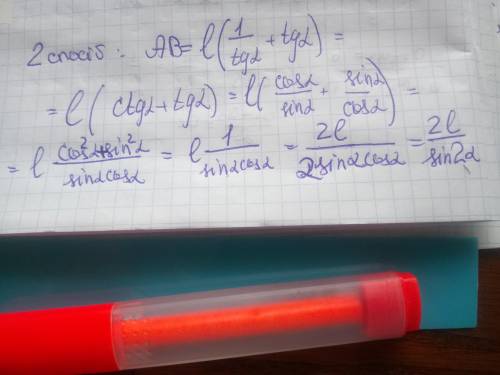 2 спосіб: AB = l(1/tgα + tgα) =
= l(ctgα + tgα) = l(cosα/sinα + sinα/cosα) =
= l (cos²α + sin²α)/(sinα cosα) = l 1/(sinα cosα) = 2l/(2 sinα cosα) = 2l/sin2α